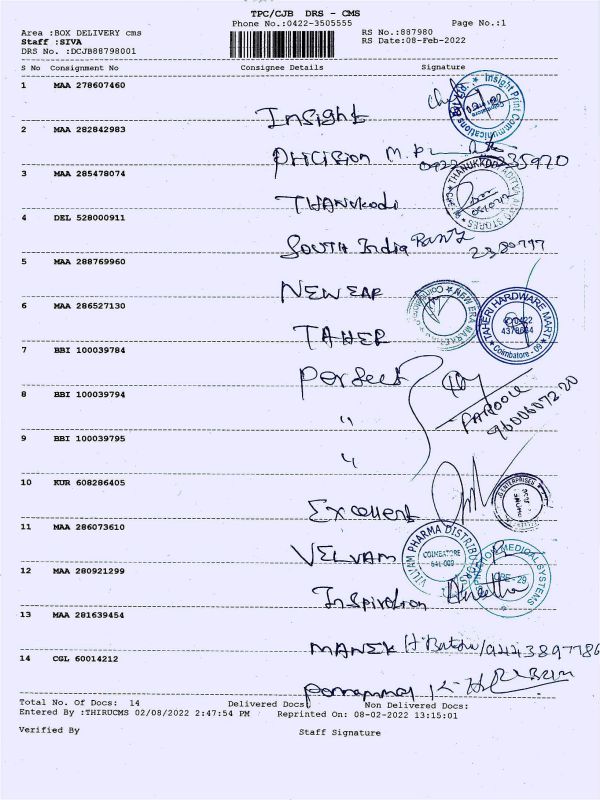 TPC/CJB DRS - CMS
Phone No.:0422-3505555
Page No.:1
Area :BOX DELIVERY cms
RS No.:887980
Staff :SIVA
RS Date:08-Feb-2022
DRS No. :DCJB88798001
S No Consignment No Consignee Details Signature
1 MAA 278607460
Insight
Insight Print Communications
2 MAA 282842983
PRICISION
3 MAA 285478074
THANUKODI
STORES
4 DEL 528000911
SOUTH India
5 MAA 288769960
NEW EAR
6 MAA 286527130
TAHER
TAHERI HARDWARE MART
Coimbatore - 09
7 BBI 100039784
Perfect
8 BBI 100039794
"
FAROOK
9600607220
9 BBI 100039795
"
10 KUR 608286405
Excellent
ENTERPRISES
11 MAA 286073610
VELVAM
VILVAM PHARMA DISTRIBUTORS
COIMBATORE
641 009
12 MAA 280921299
Inspiration
MEDICAL SYSTEMS
CBE-29
13 MAA 281639454
MANEK
14 CGL 60014212
Total No. Of Docs: 14 Delivered Docs: Non Delivered Docs:
Entered By :THIRUCMS 02/08/2022 2:47:54 PM Reprinted On: 08-02-2022 13:15:01
Verified By Staff Signature